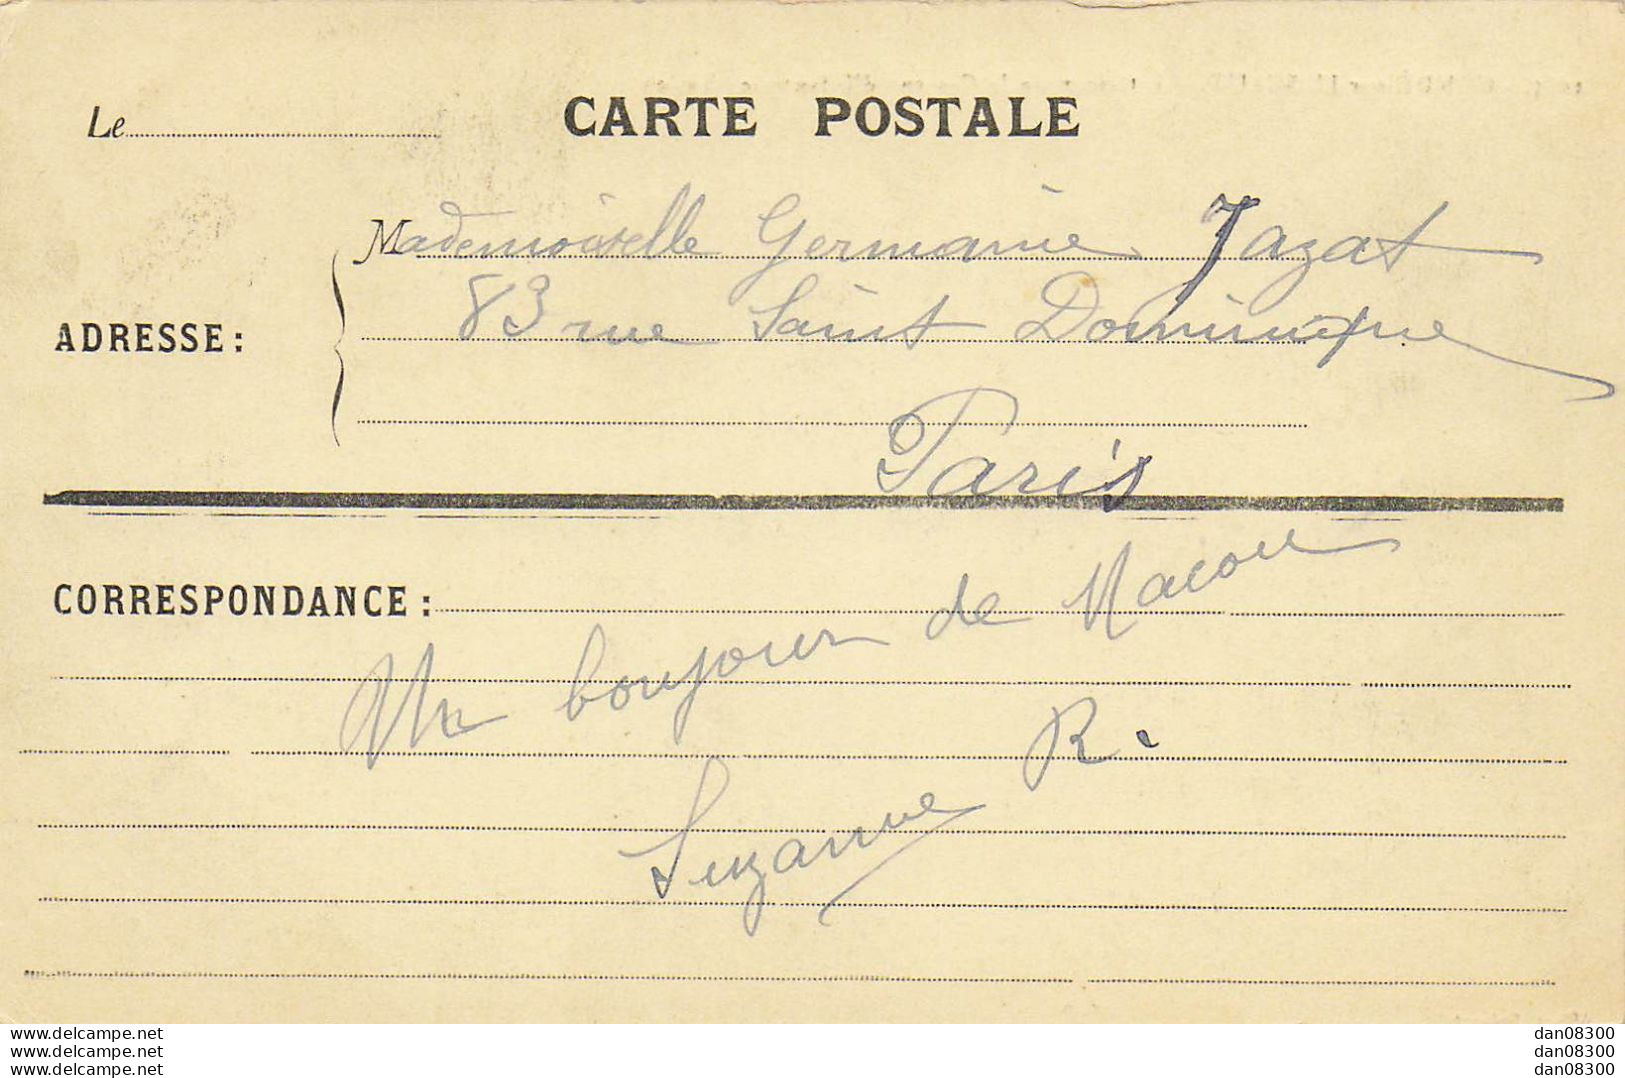 CARTE POSTALE
Le
Mademoiselle Germaine Jazat
ADRESSE :
83 rue Saint Dominique
Paris
CORRESPONDANCE :
Un bonjour de Macon
Suzanne R.
www.delcampe.net
www.delcampe.net
www.delcampe.net
dan08300
dan08300
dan08300